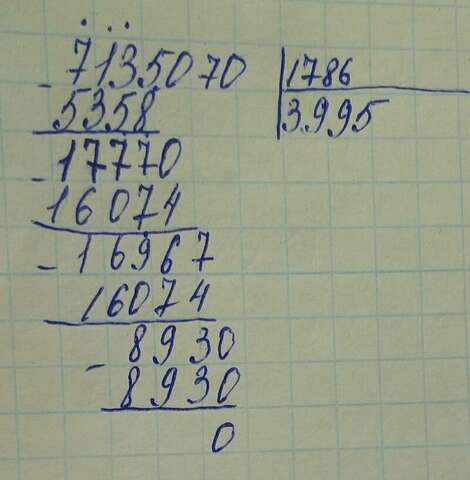 7135070 | 1786
- 5358 | 3.995
- 17770
16074
- 16967
16074
- 8930
8930
0